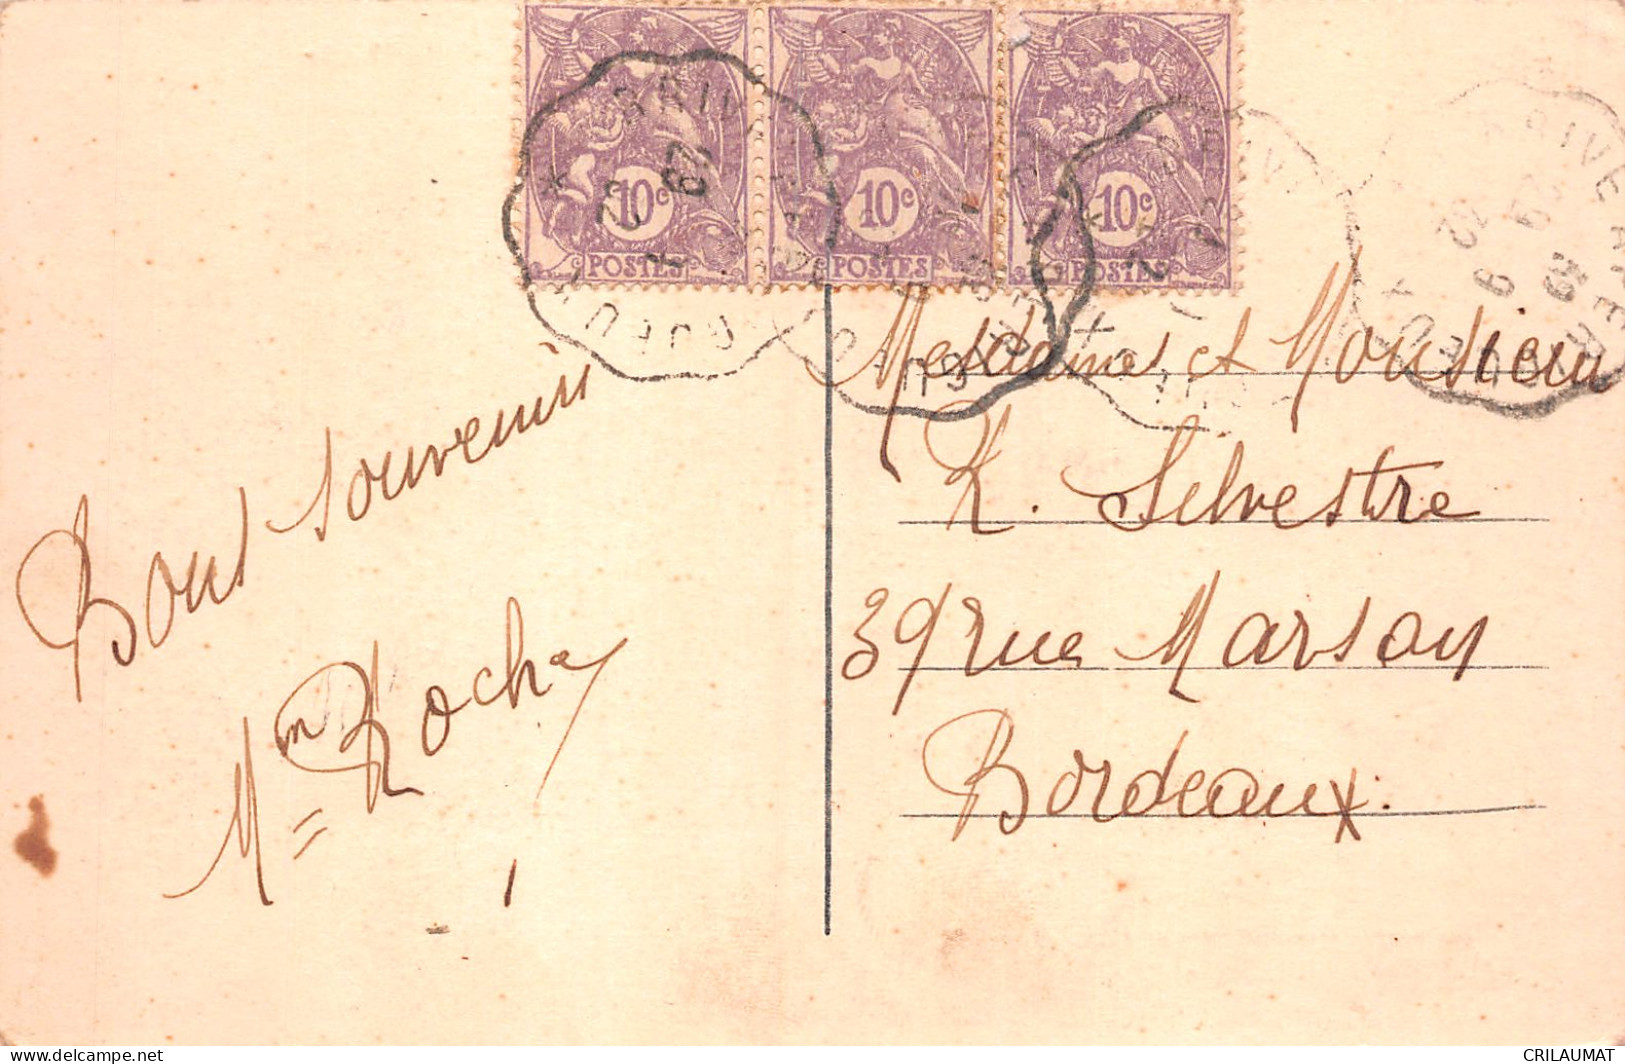 10c
POSTES
10c
POSTES
10c
POSTES
BRIVE
Bons souvenirs
Mme Roche
Mesdames et Monsieur
R. Silvestre
39 rue Marsan
Bordeaux.
www.delcampe.net
CRILAUMAT